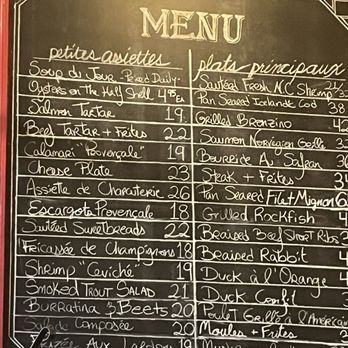 MENU
petites assiettes
Soup du Jour Priced Daily
Oysters on the Half Shell 4.95 EA
Salmon Tartar 19
Beef Tartar + Frites 22
Calamari "Provençale" 19
Cheese Plate 23
Assiette de Charcuterie 26
Escargots Provençale 18
Sautéed Sweetbreads 22
Fricassée de Champignons 18
Shrimp "Ceviché" 19
Smoked Trout Salad 21
Burratina & Beets 20
Composée 20
Aux Lardons
plats principaux
Sautéed Fresh N.C Shrimp
Pan Seared Icelandic Cod 38
Grilled Bronzino
Saumon Norvegien Grillé
Bourride Au Safran 36
Steak + Frites
Pan Seared Filet Mignon
Grilled Rockfish
Braised Beef Short Ribs
Braised Rabbit
Duck à l'Orange
Duck Confit
Poulet Grillé à l'Américaine
Moules + Frites